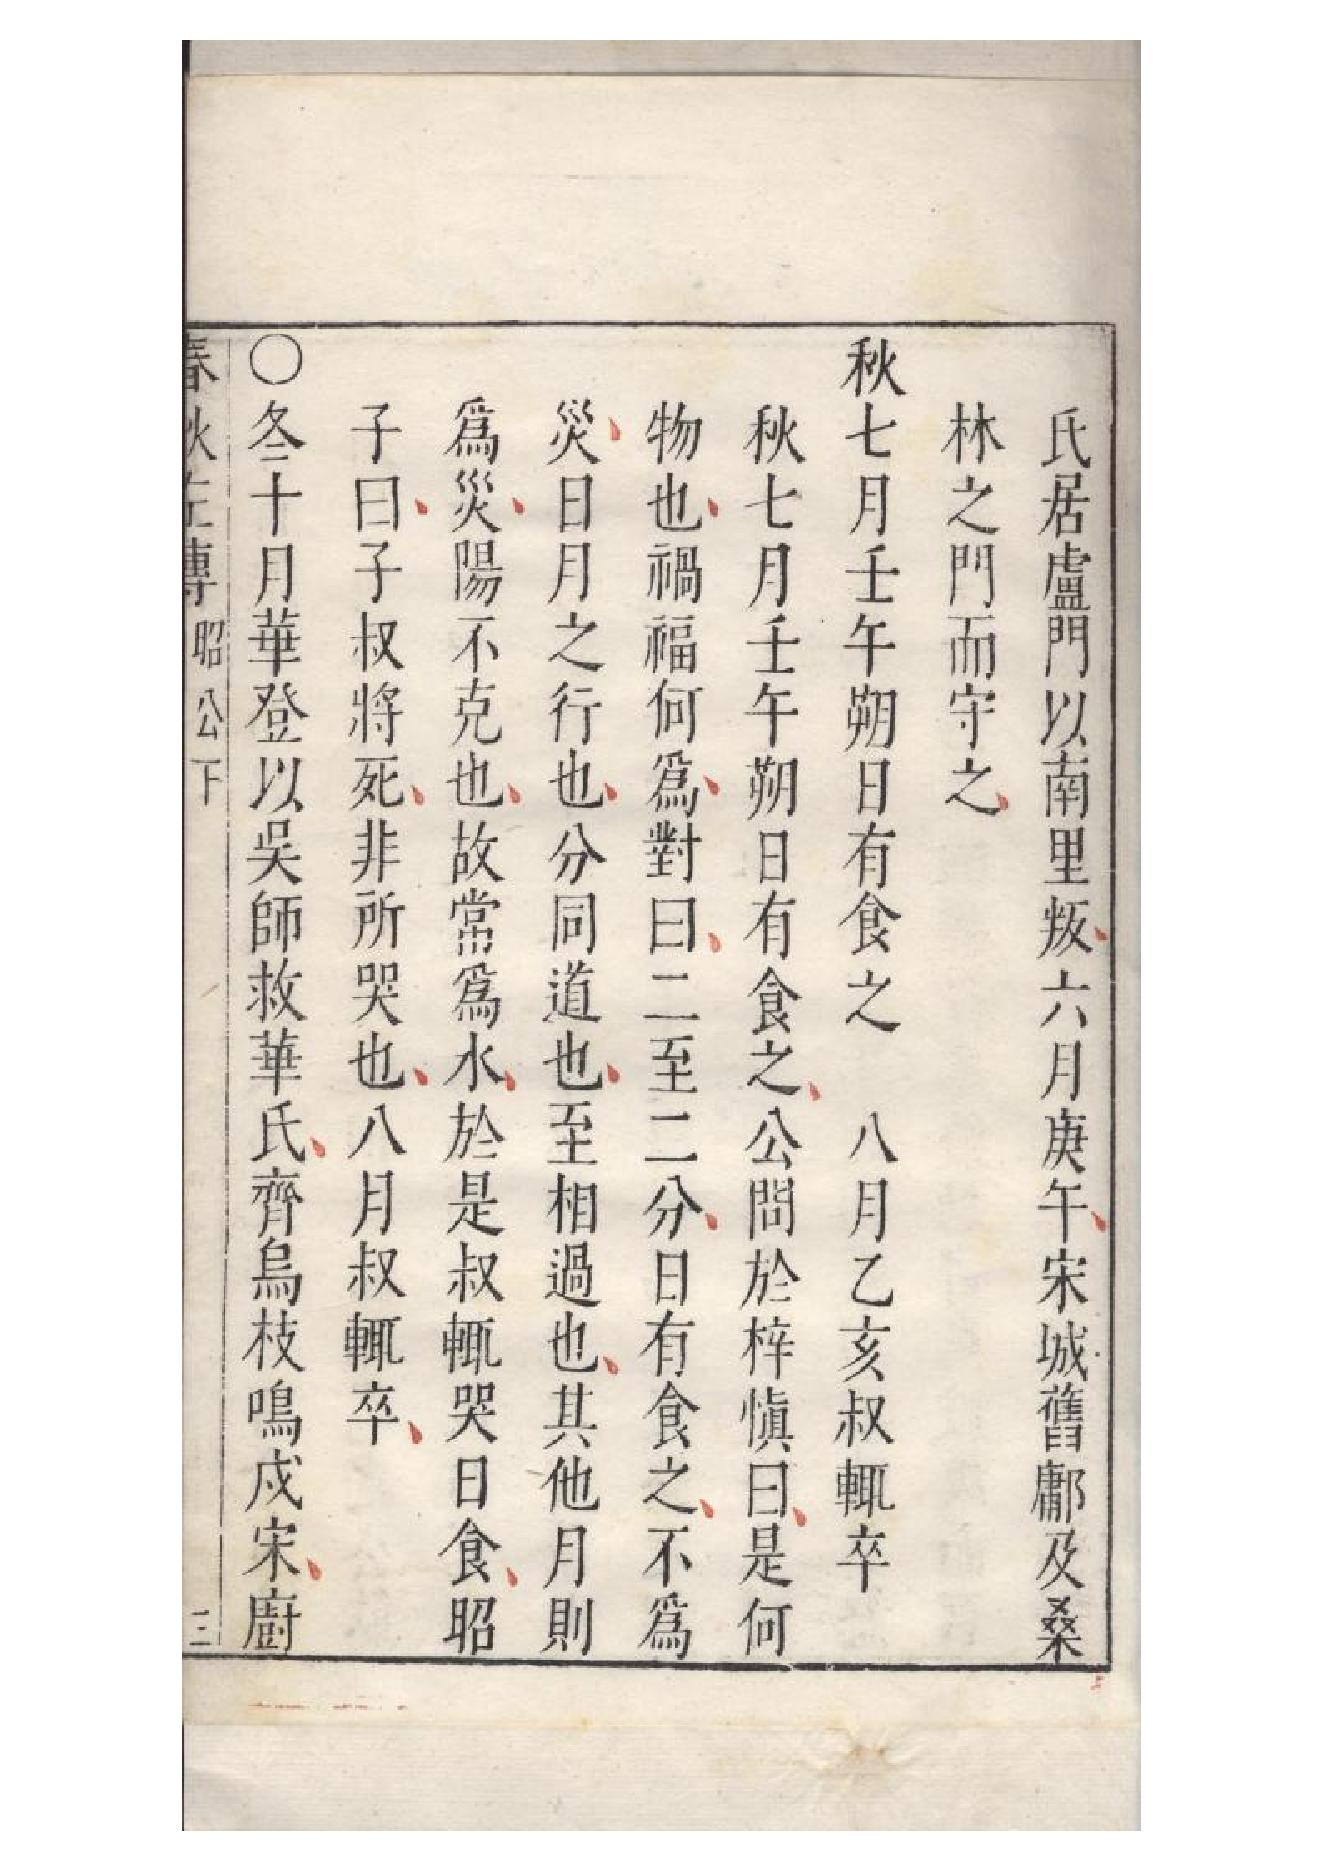 氏居盧門以南里叛六月庚午宋城舊鄘及桑
林之門而守之
秋七月壬午朔日有食之　八月乙亥叔輒卒
秋七月壬午朔日有食之公問於梓慎曰是何
物也禍福何爲對曰二至二分日有食之不爲
災日月之行也分同道也至相過也其他月則
爲災陽不克也故常爲水於是叔輒哭日食昭
子曰子叔將死非所哭也八月叔輒卒
〇冬十月華登以吳師救華氏齊烏枝鳴戍宋廚
春秋左傳 昭公下 三